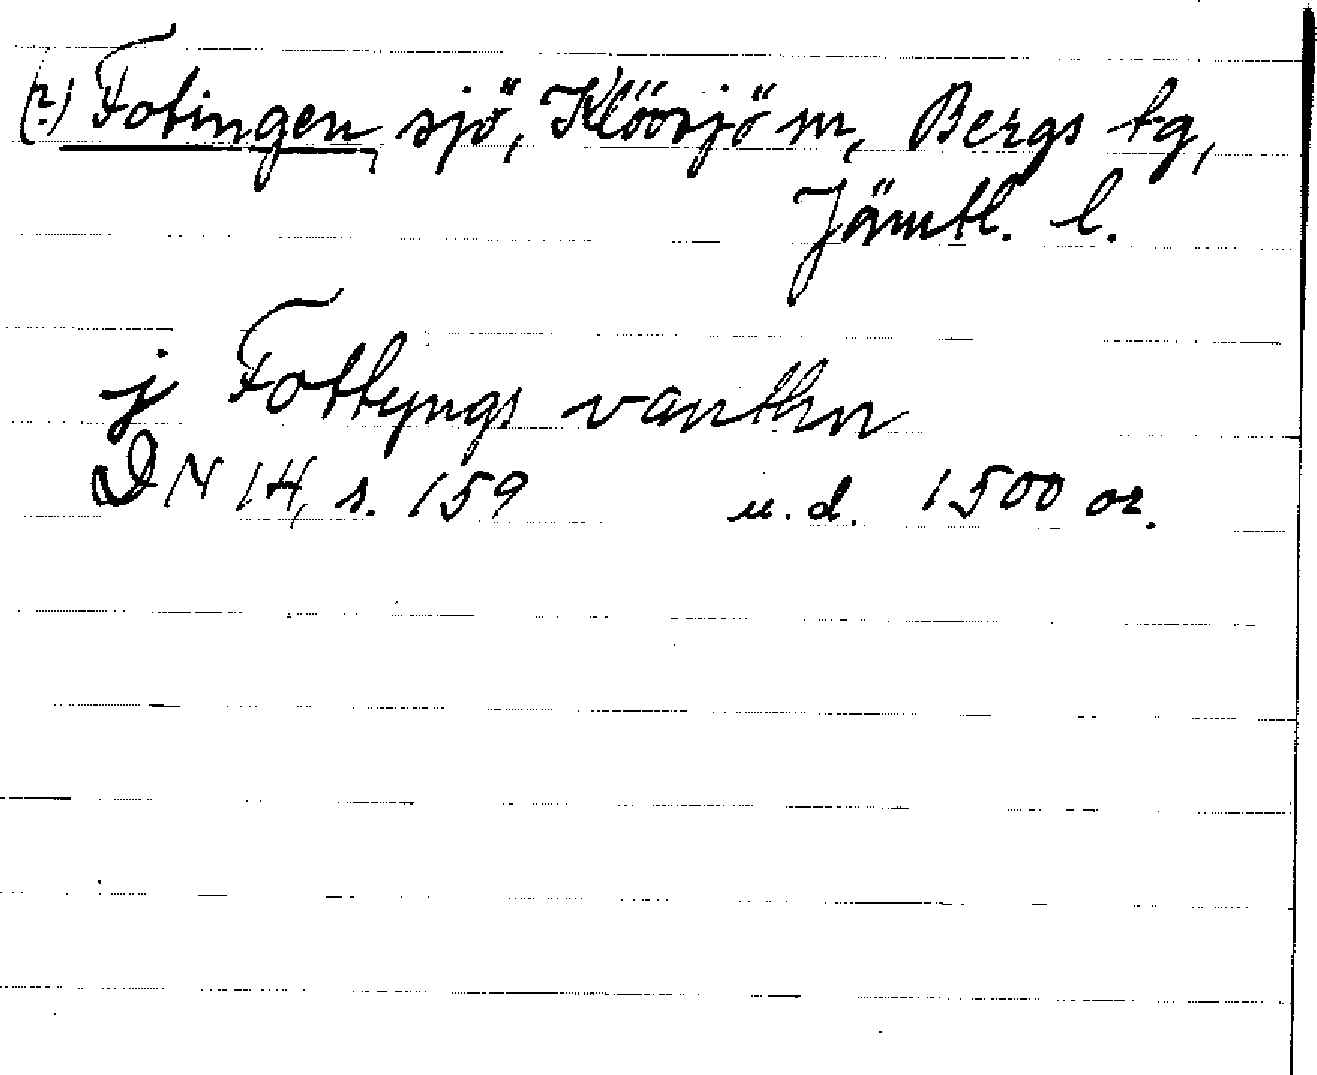 (?) Fotingen, sjö, Klövsjö sn, Bergs tg,
Jämtl. l.
j Fottyngs vanthn
DN 14, s. 159 u.d. 1500 or.